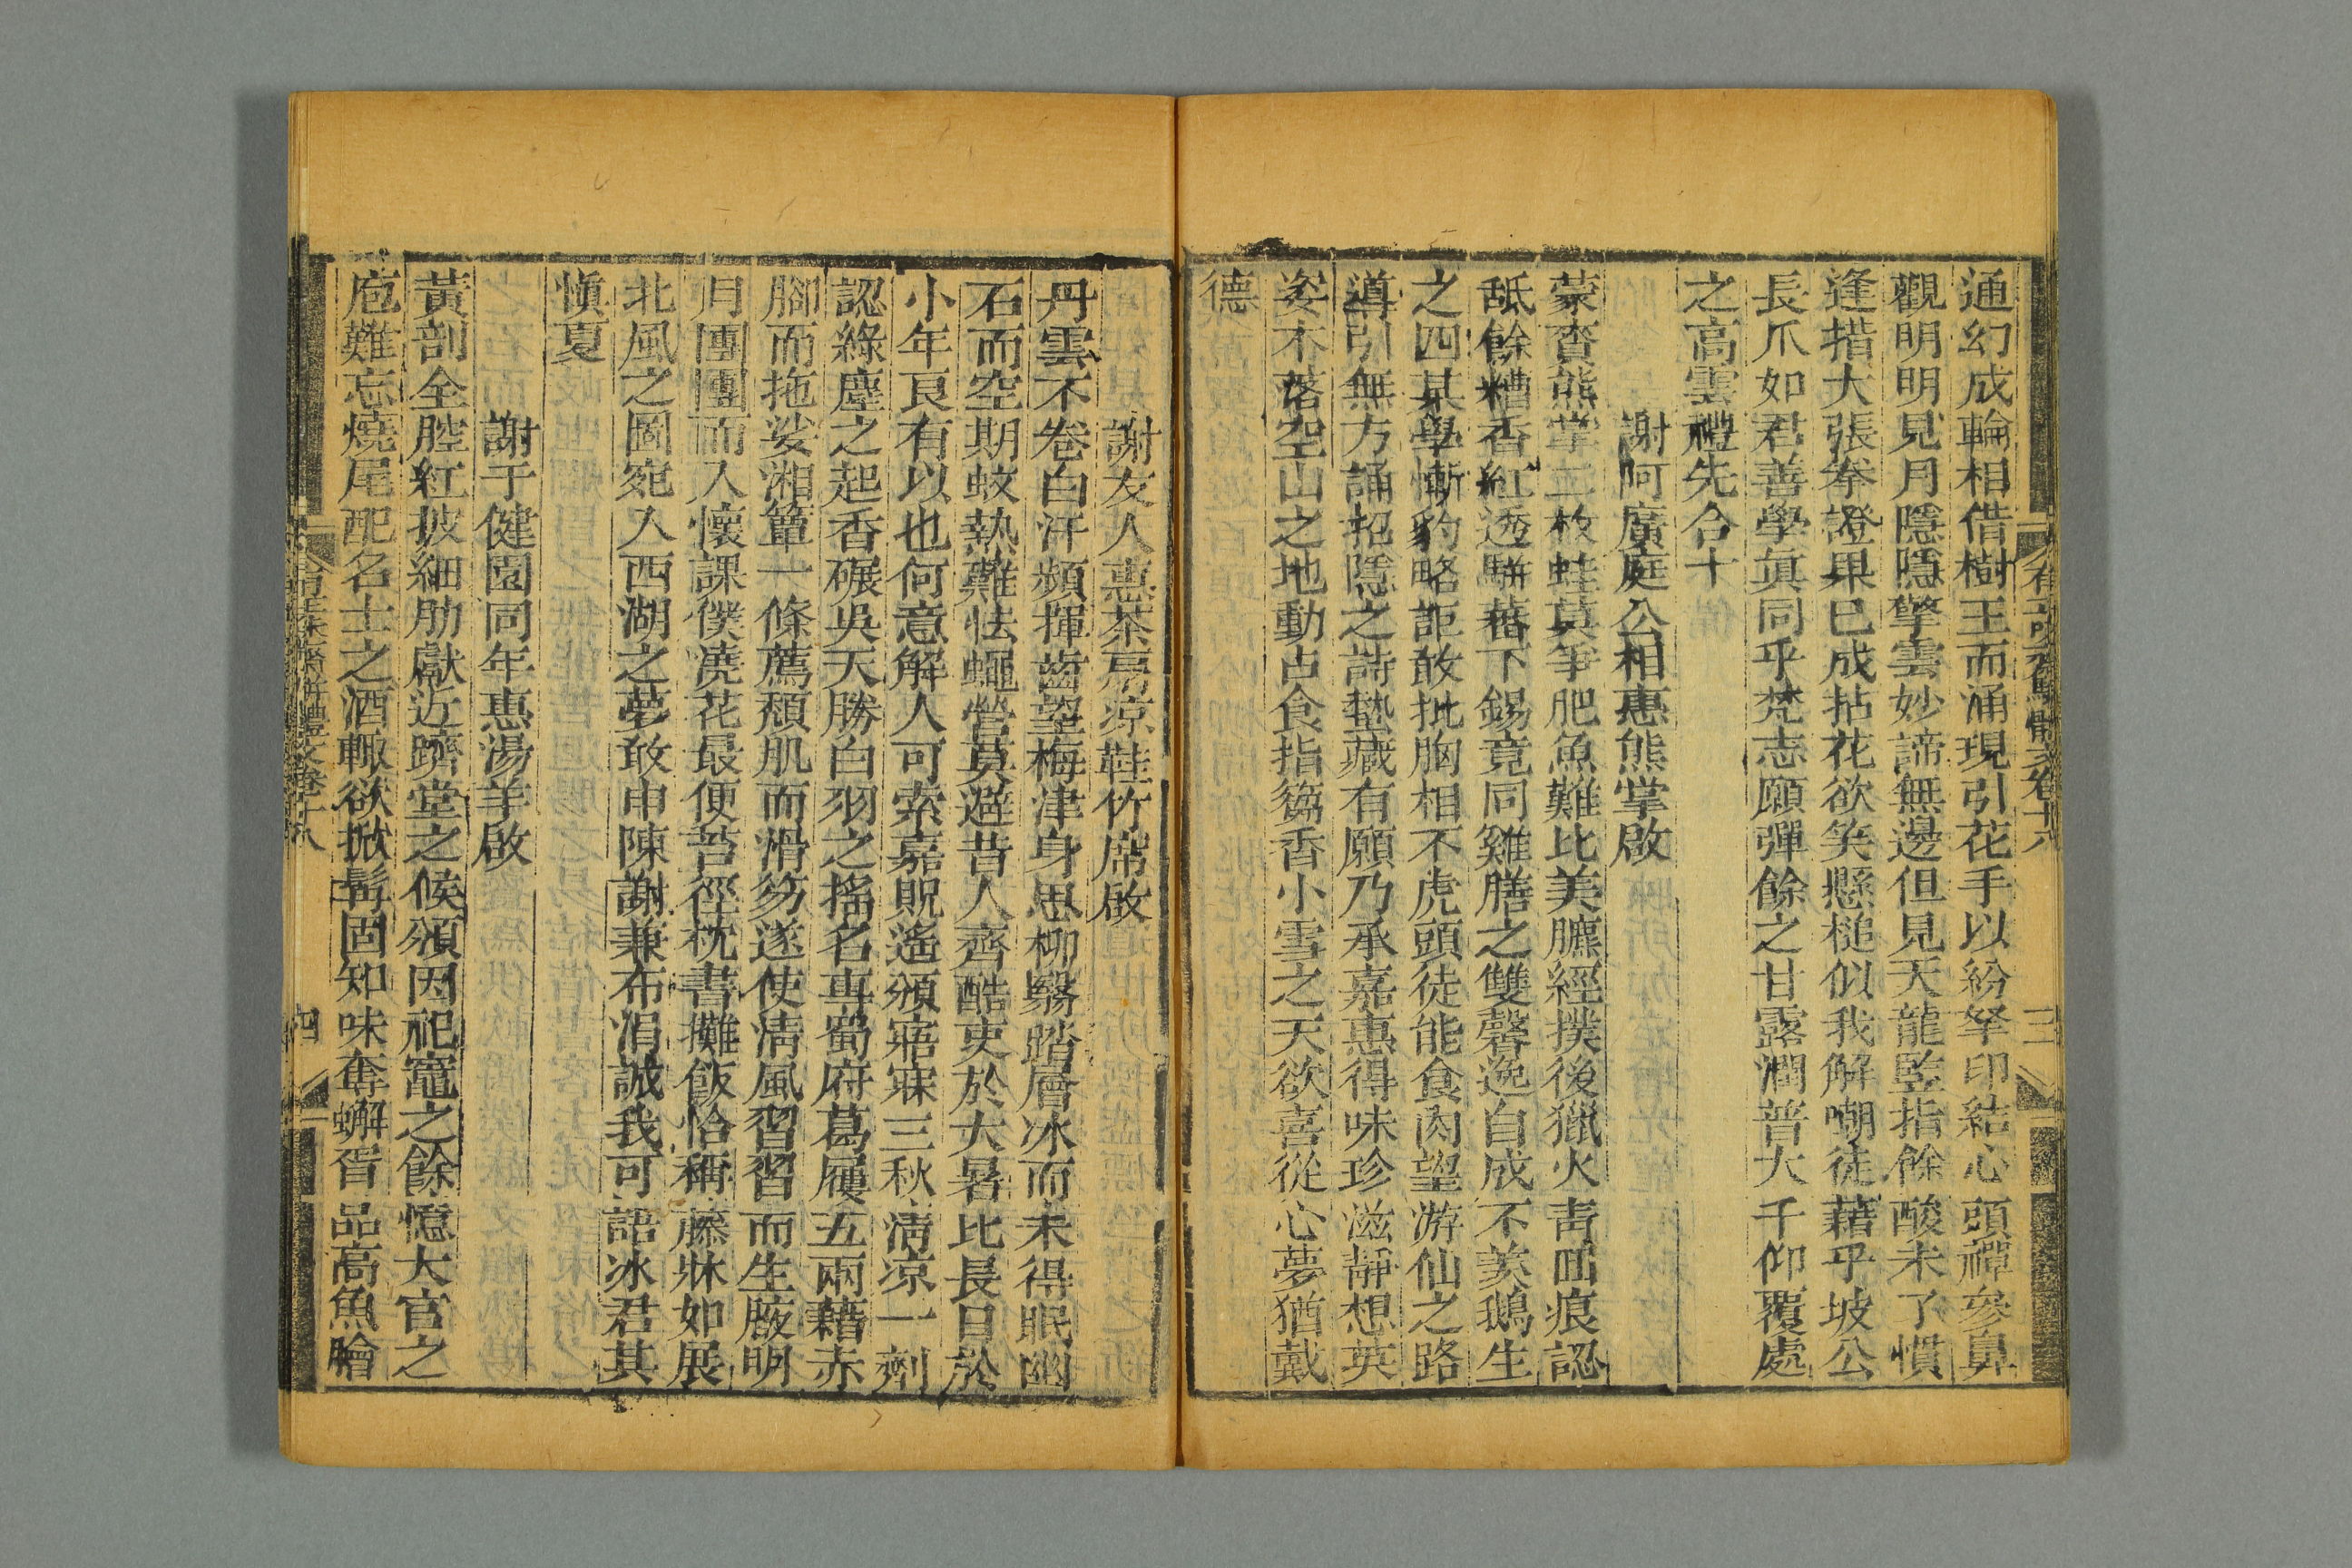 通幻成輪相借樹王而涌現引花手以紛拏印結心頭禪參鼻
觀明明見月隱隱擎雲妙諦無邊但見天龍監指餘酸未了慣
逢措大張拳證果已成拈花欲笑懸槌似我解嘲徒藉乎坡公
長爪如君善學眞同乎梵志願彈餘之甘露潤普大千仰覆處
之高雲禮先合十
謝阿廣庭公相惠熊掌啟
蒙賚熊掌二枚蛙莫爭肥魚難比美臕經撲後獵火靑凹痕認
舐餘糟香紅透駢蕃下錫竟同雞膳之雙馨逸自成不羨鵝生
之四某學慚豹略詎敢批胸相不虎頭徒能食肉望游仙之路
導引無方誦招隱之詩蟄藏有願乃承嘉惠得味珍滋靜想英
姿木落空山之地動占食指芻香小雪之天欲喜從心夢猶戴
德
謝友人惠茶扇涼鞋竹席啟
丹雲不卷白汗頻揮齒望梅津身思柳翳踏層冰而未得眠幽
石而空期蚊熱難怯蠅營莫避昔人齊酷吏於大暑比長日於
小年良有以也何意解人可索嘉貺遙頒寤寐三秋淸涼一劑
認綠塵之起香碾吳天勝白羽之搖名專蜀府葛屨五兩藉赤
腳而拖娑湘簟一條薦頹肌而滑笏遂使淸風習習而生腋明
月團團而入懷課僕澆花最便苔徑枕書攤飯恰稱藤牀如展
北風之圖宛入西湖之夢敢申陳謝兼布涓誠我可語冰君其
愼夏
謝于健園同年惠湯羊啟
黃剖全腔紅披細肋獻近躋堂之候頒因祀竈之餘憶大官之
庖難忘燒尾配名士之酒輒欲掀髯固知味奪蠏胥品高魚膾
卷十八
三
四